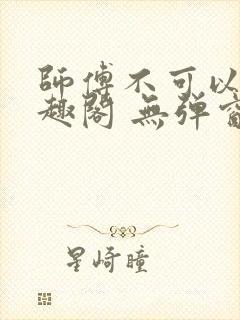 師傅不可以
趣閣 無彈窗
星崎瞳